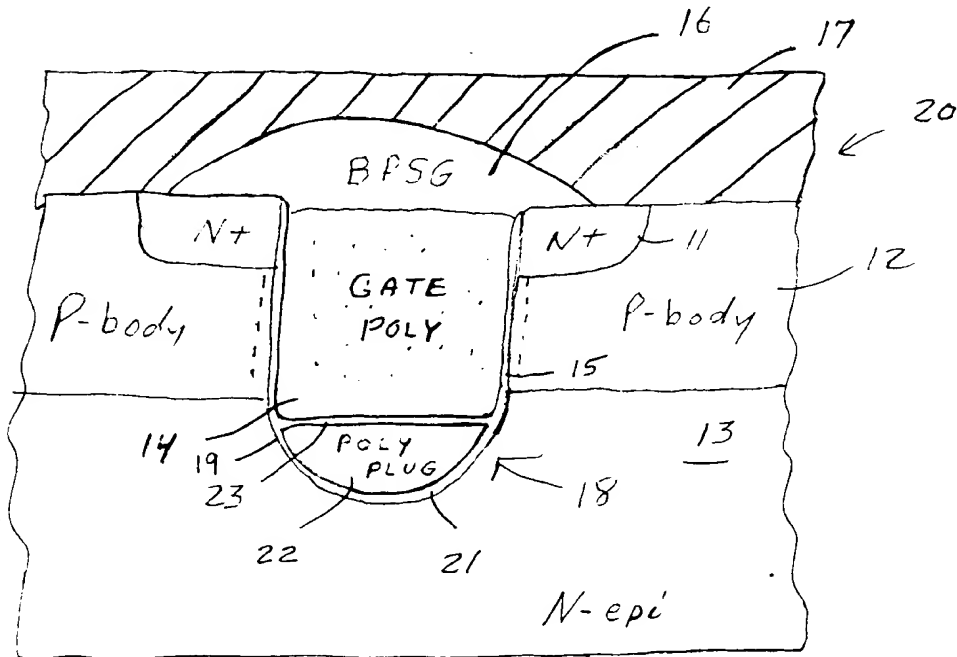 16
17
20
BPSG
N+
N+
11
12
GATE
POLY
P-body
P-body
15
14
19
23
POLY
PLUG
13
18
22
21
N-epi